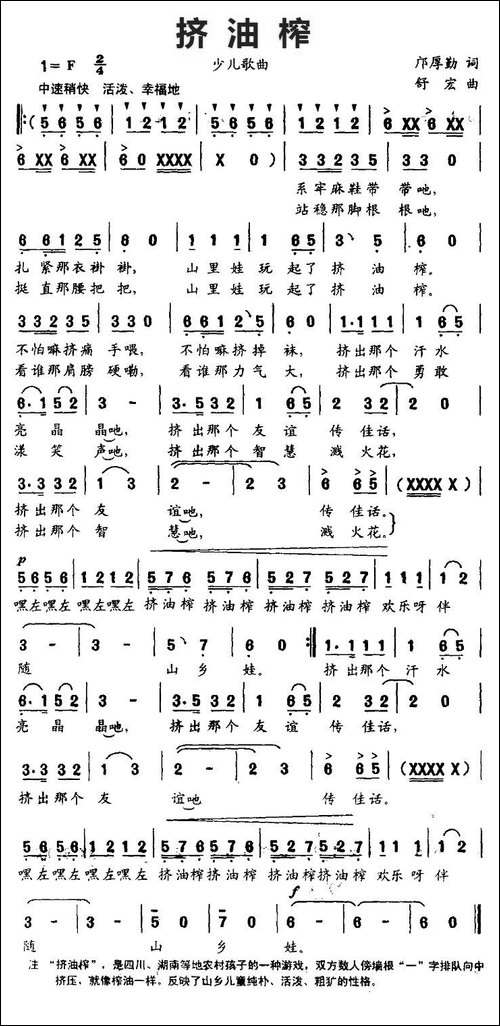 挤油榨
1=F 2/4
少儿歌曲
邝厚勤 词
舒宏 曲
中速稍快 活泼、幸福地
‖:(5656 | 1212 | 5656 | 1212 | 6 XX 6 XX |
6 XX 6 XX | 6 0 XXXX | X 0 ) | 33235 | 3 3 0 |
系牢麻鞋带 带吔,
站稳那脚根 根吔,
6 6125 | 6 0 | 1 1 1 | 1 65 | 3 3 | 5 | 6 0 |
扎紧那衣褂褂, 山里娃玩 起了 挤 油 榨。
挺直那腰把把, 山里娃玩 起了 挤 油 榨。
33235 | 33 0 | 66125 | 6 0 | 1·111 | 1 65 |
不怕嘛挤痛 手喂, 不怕嘛挤掉 袜, 挤出那个 汗水
看谁那肩膀 硬嘞, 看谁那力气 大, 挤出那个 勇敢
6·152 | 3 - | 3·532 | 1 65 | 2 32 | 2 0 |
亮晶 晶吔, 挤出那个友谊 传佳话,
漾笑 声吔, 挤出那个智慧 溅火花,
3·332 | 1 3 | 2 - | 2 3 | 6 65 | (XXXX X) |
挤出那个 友 谊吔, 传 佳话。
挤出那个 智 慧吔, 溅 火花。
p
5656 | 1212 | 576 576 | 527 527 | 111 | 12 |
嘿左嘿左 嘿左嘿左 挤油榨 挤油榨 挤油榨 挤油榨 欢乐呀 伴
3 - | 3 - | 5 7 | 6 0 :‖ 1·111 | 1 65 |
随 山 乡 娃。 挤出那个 汗 水
6·152 | 3 - | 3·532 | 1 65 | 2 32 | 2 0 |
亮晶 晶吔, 挤出那个友谊 传佳话,
3·332 | 1 3 | 2 - | 2 3 | 6 65 | (XXXX X) |
挤出那个 友 谊吔 传 佳话。
5656 | 1212 | 576 576 | 527 527 | 111 | 12 |
嘿左嘿左 嘿左嘿左 挤油榨挤油榨 挤油榨挤油榨 欢乐呀 伴
f
3 - | 3 - | 50 | 70 | 6 - | 6 0 ‖
随 山 乡 娃。
注 “挤油榨”,是四川、湖南等地农村孩子的一种游戏,双方数人傍墙根“一”字排队向中
挤压、就像榨油一样。反映了山乡儿童纯朴、活泼、粗犷的性格。